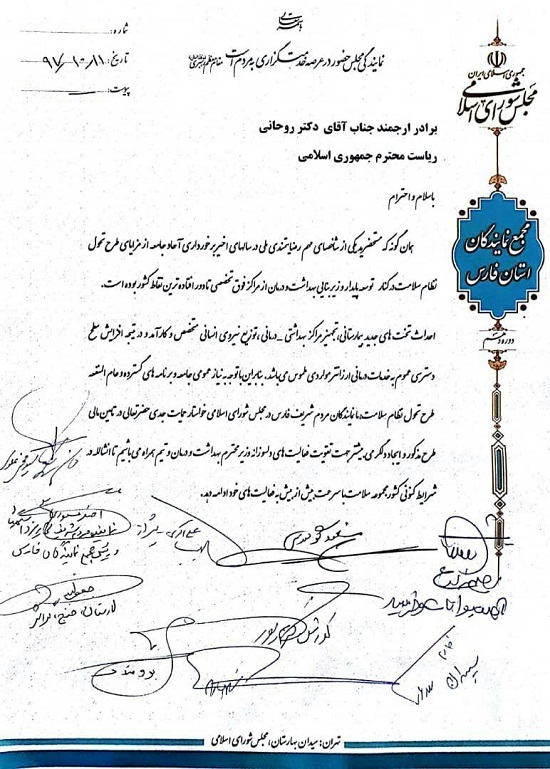 باسمه تعالی
نمایندگی مجلس حضور در عرصه خدمتگزاری به مردم است
شماره:
تاریخ: ۹۷/۱۰/۱۱
پیوست:
جمهوری اسلامی ایران
مجلس شورای اسلامی
مجمع نمایندگان
استان فارس
دوره دهم
برادر ارجمند جناب آقای دکتر روحانی
ریاست محترم جمهوری اسلامی
باسلام و احترام
همان گونه که مستحضرید یکی از شاخصهای مهم رضایتمندی ملی در سالهای اخیر برخورداری آحاد جامعه از مزایای طرح تحول
نظام سلامت در کنار توسعه پایدار و زیربنایی بهداشت و درمان از مراکز فوق تخصصی تا دور افتاده ترین نقاط کشور بوده است.
احداث تخت های جدید بیمارستانی، تجهیز مراکز بهداشتی _درمانی، توزیع نیروی انسانی متخصص و کارآمد و در نتیجه افزایش سطح
دسترسی عموم به خدمات درمانی ارزانتر مواردی ملموس می باشد. بنابراین با توجه به نیاز عمومی جامعه و برنامه های گسترده و عام المنفعه
طرح تحول نظام سلامت، ما نمایندگان مردم شریف فارس در مجلس شورای اسلامی خواستار حمایت جدی حضرتعالی در تامین مالی
طرح مذکور و ایجاد دلگرمی بیشتر جهت تقویت فعالیت های دلسوزانه وزیر محترم بهداشت و درمان و تیم همراه می باشیم تا انشااله در
شرایط کنونی کشور مجموعه سلامت با سرعت بیش از پیش به فعالیت های خود ادامه دهد.
علی اکبری شیراز
مسعود گودرزی
و رئیس مجمع نمایندگان فارس
لارستان، خنج، گراش
تهران: میدان بهارستان، مجلس شورای اسلامی